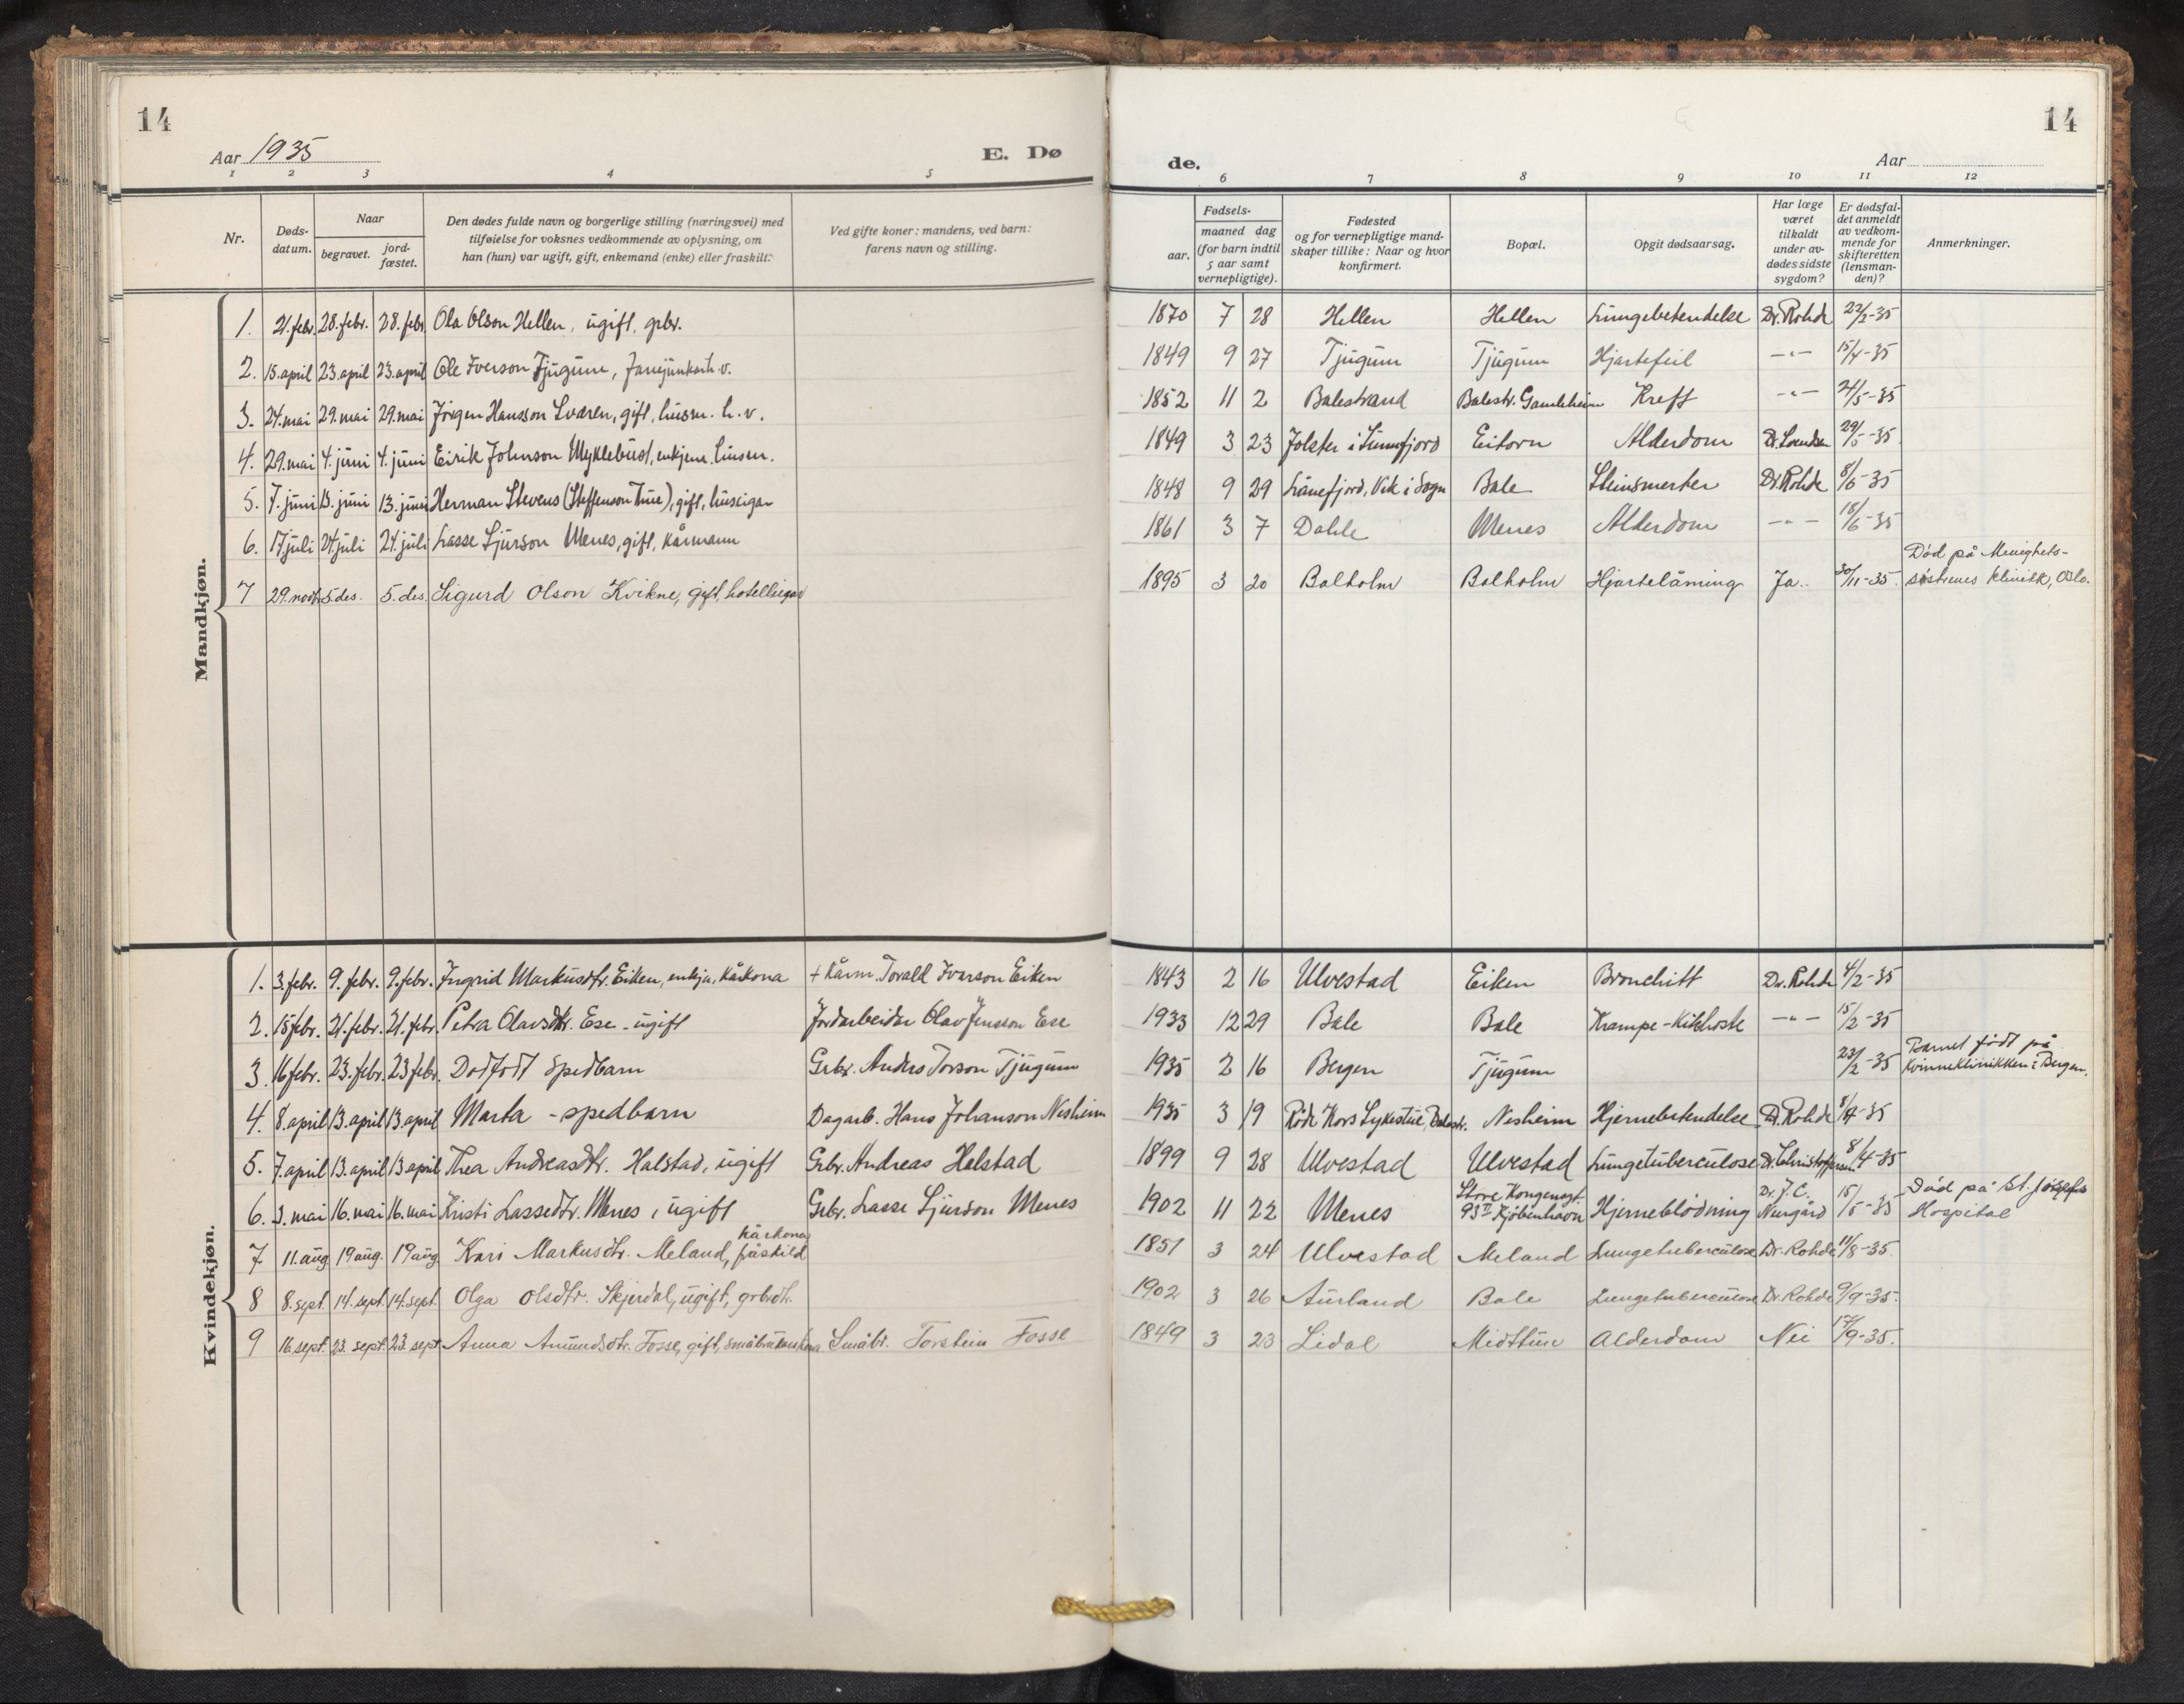 14
14
Aar 1935
E. Dø
de.
Aar
1 2 3 4 5
6 7 8 9 10 11 12
Nr.
Døds-datum.
Naar
begravet.
jord-fæstet.
Den dødes fulde navn og borgerlige stilling (næringsvei) med
tilføielse for voksnes vedkommende av oplysning, om
han (hun) var ugift, gift, enkemand (enke) eller fraskilt.
Ved gifte koner: mandens, ved barn:
farens navn og stilling.
Fødsels-
aar.
maaned dag
(for barn indtil
5 aar samt
vernepligtige).
Fødested
og for vernepligtige mand-
skaper tillike: Naar og hvor
konfirmert.
Bopæl.
Opgit dødsaarsag.
Har læge
været
tilkaldt
under av-
dødes sidste
sygdom?
Er dødsfal-
det anmeldt
av vedkom-
mende for
skifteretten
(lensman-
den)?
Anmerkninger.
Mandkjøn.
1. 21. febr. 28. febr. 28. febr. Ola Olson Hellen, ugift, grbr. 1870 7 28 Hellen Hellen Lungebetendelse Dr. Rohde 22/2-35
2. 15. april 23. april 23. april Ole Iverson Tjugum, 1849 9 27 Tjugum Tjugum Hjartefeil -"- 15/4-35
3. 24. mai 29. mai 29. mai Jørgen Hansson Sværen, gift, husm. h.v. 1852 11 2 Balestrand Balestr. Gamleheim Kreft -"- 21/5-35
4. 29. mai 4. juni 4. juni Eirik Johnson Myklebust, enkjem. husm. 1849 3 23 Jølster i Sunnfjord Eitorn Alderdom 29/5-35
5. 7. juni 13. juni 13. juni Herman Stevens (Steffenson Tue), gift, huseigar 1848 9 29 Lånefjord, Vik i Sogn Bale Steinsmerter Dr. Rohde 8/6-35
6. 17 juli 24 juli 24. juli Lasse Sjurson Menes, gift, kårmann 1861 3 7 Dahle Menes Alderdom -"- 18/6-35
7 29. novbr. 5. des. 5. des. Sigurd Olson Kvikne, gift, hotelleigar 1895 3 20 Balholm Balholm Hjartelåming Ja.. 30/11-35. Død på Menighets-
søstrenes klinikk, Oslo.
Kvindekjøn.
1. 3. febr. 9. febr. 9. febr. Ingrid Markusdtr. Eiken, enkja, kårkona + Kårm. Torald Iverson Eiken 1843 2 16 Ulvestad Eiken Bronchitt Dr. Rohde 4/2-35
2. 15 febr. 21. febr. 21. febr. Petra Olavsdtr. Ese - ugift Jordarbeidar Olav Jensson Ese 1933 12 29 Bale Bale Krampe - Kikhoste -"- 15/2-35
3. 16 febr. 23. febr. 23 febr. Dødfødt Spedbarn Grbr. Anders Torson Tjugum 1935 2 16 Bergen Tjugum 23/2-35 Barnet født på
Kvinneklinikken i Bergen.
4. 8. april 13. april 13. april Marta - spedbarn Dagarb. Hans Johanson Nesheim 1935 3 19 Røde Kors Sykestue, Balestr. Nesheim Hjernebetendelse Dr. Rohde 8/4-35
5. 7. april 13. april 13 april Thea Andreasdtr. Halstad, ugift Grbr. Andreas Helstad 1899 9 28 Ulvestad Ulvestad Lungetuberculose Dr. Christoffersen 8/4-35
6. 3. mai 16. mai 16. mai Kristi Lassedtr. Menes, ugift Grbr. Lasse Sjurson Menes 1902 11 22 Menes Store Kongensgt.
93 II Kjøbenhavn Hjerneblødning Dr. J. C. 15/5-35 Død på St. Josefs
Hospital
7 11. aug 19 aug. 19 aug. Kari Markusdtr. Meland, kårkona fråskild 1851 3 24 Ulvestad Meland Lungetuberculose Dr. Rohde 11/8-35.
8 8. sept. 14. sept. 14. sept. Olga Olsdtr. Skjerdal, ugift, grbrdtr. 1902 3 26 Aurland Bale Lungetuberculose Dr. Rohde 9/9-35.
9 16. sept. 23. sept. 23. sept. Anna Amundsdtr. Fosse, gift, småbrukarkona Småbr. Torstein Fosse 1849 3 23 Lidal Midttun Alderdom Nei 17/9-35.